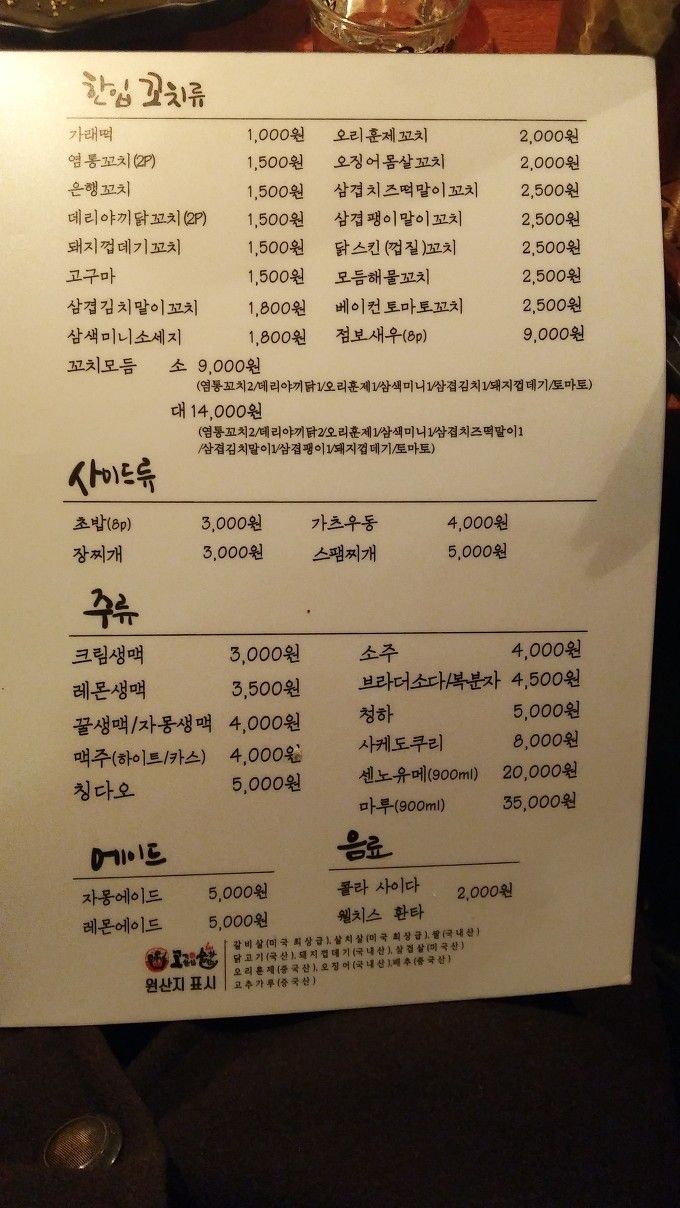 한입 꼬치류
가래떡 1,000원 오리훈제꼬치 2,000원
염통꼬치(2P) 1,500원 오징어몸살꼬치 2,000원
은행꼬치 1,500원 삼겹치즈떡말이꼬치 2,500원
데리야끼닭꼬치(2P) 1,500원 삼겹팽이말이꼬치 2,500원
돼지껍데기꼬치 1,500원 닭스킨(껍질)꼬치 2,500원
고구마 1,500원 모듬해물꼬치 2,500원
삼겹김치말이꼬치 1,800원 베이컨토마토꼬치 2,500원
삼색미니소세지 1,800원 점보새우(8p) 9,000원
꼬치모듬 소 9,000원
(염통꼬치2/데리야끼닭1/오리훈제1/삼색미니1/삼겹김치1/돼지껍데기/토마토)
대 14,000원
(염통꼬치2/데리야끼닭2/오리훈제1/삼색미니1/삼겹치즈떡말이1
/삼겹김치말이1/삼겹팽이1/돼지껍데기/토마토)
사이드류
초밥(8p) 3,000원 가츠우동 4,000원
장찌개 3,000원 스팸찌개 5,000원
주류
크림생맥 3,000원 소주 4,000원
레몬생맥 3,500원 브라더소다/복분자 4,500원
꿀생맥/자몽생맥 4,000원 청하 5,000원
맥주(하이트/카스) 4,000원 사케도쿠리 8,000원
칭다오 5,000원 센노유메(900ml) 20,000원
마루(900ml) 35,000원
에이드 음료
자몽에이드 5,000원 콜라 사이다 2,000원
레몬에이드 5,000원 웰치스 환타
원산지 표시
갈비살(미국 최상급), 살치살(미국 최상급), 쌀(국내산)
닭고기(국산), 돼지껍데기(국내산), 삼겹살(미국산)
오리훈제(중국산), 오징어(국내산), 배추(중국산)
고추가루(중국산)